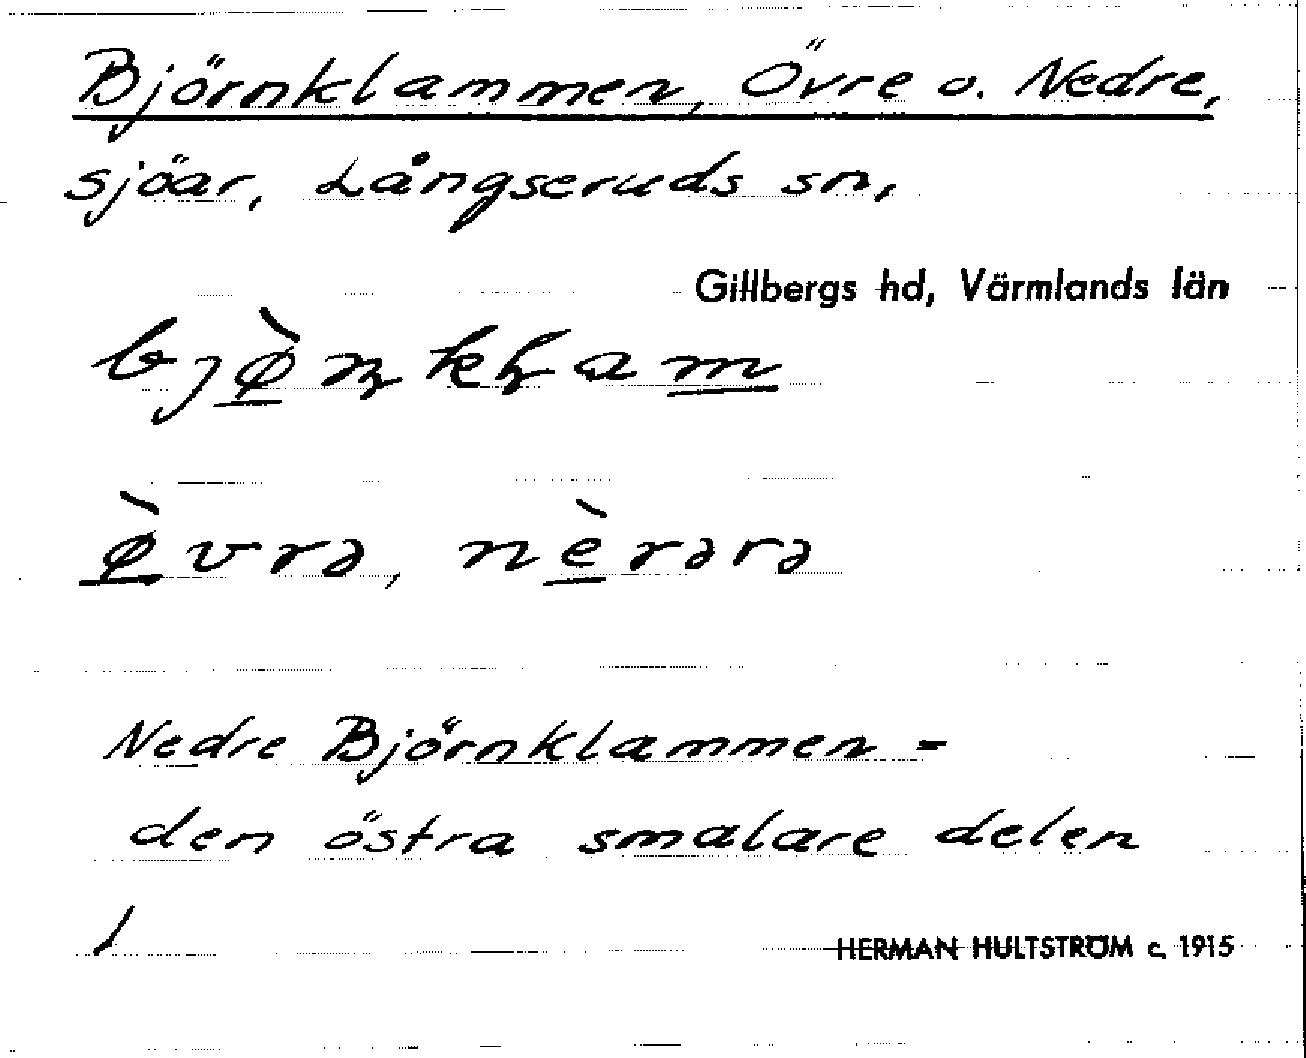 Björnklammen, Övre o. Nedre,
sjöar, Långseruds sn,
Gillbergs hd, Värmlands län
bjø̀ɳkɽam
ø̀vrə, nèrərə
Nedre Björnklammen =
den östra smalare delen
HERMAN HULTSTRÖM c. 1915